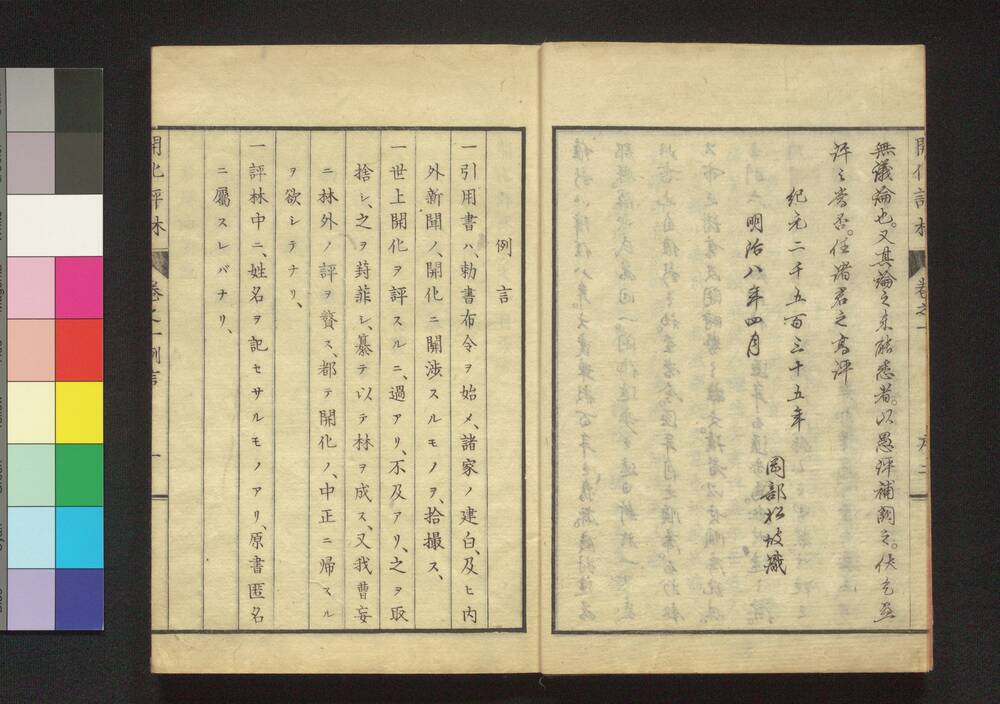 無議論也。又其論之未能悉者。以愚評補闕之。伏乞並
評之當否。任諸君之高評
紀元二千五百三十五年
明治八年四月
岡部松坡識
例言
一引用書ハ、勅書布令ヲ始メ、諸家ノ建白、及ヒ内
外新聞ノ、開化ニ関渉スルモノヲ、拾撮ス、
一世上開化ヲ評スルニ、過アリ、不及アリ、之ヲ取
捨シ、之ヲ葑菲シ、纂テ以テ林ヲ成ス、又我曹妄
ニ林外ノ評ヲ贅ス、都テ開化ノ、中正ニ帰スル
ヲ欲シテナリ、
一評林中ニ、姓名ヲ記セサルモノアリ、原書匿名
ニ属スレバナリ、
開化評林 巻之一例言 一